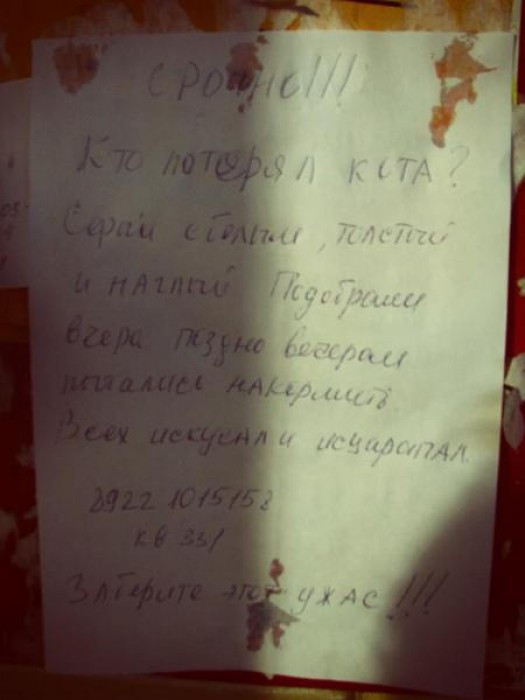 СРОЧНО!!!
Кто потерял кота?
Серый с белым, толстый
и наглый Подобрали
вчера поздно вечером
пытались накормить.
Всех искусал и исцарапал
89221015158
кв 331
Заберите этот ужас!!!